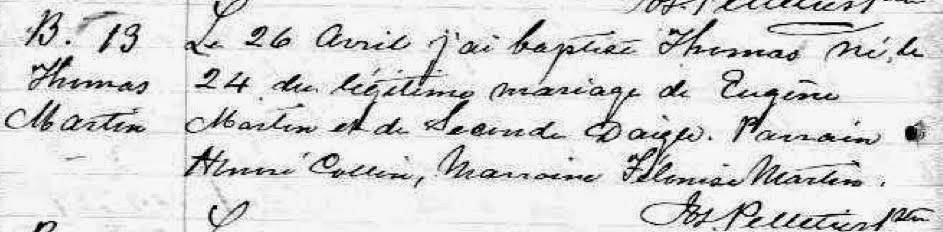 Jos Pelletier ptre
B. 13 Le 26 Avril j'ai baptisé Thomas né le
Thomas 24 du légitime mariage de Eugène
Martin Martin et de Seconde Daigle. Parrain
Henri Collin, Marraine Félonise Martin.
Jos Pelletier ptre